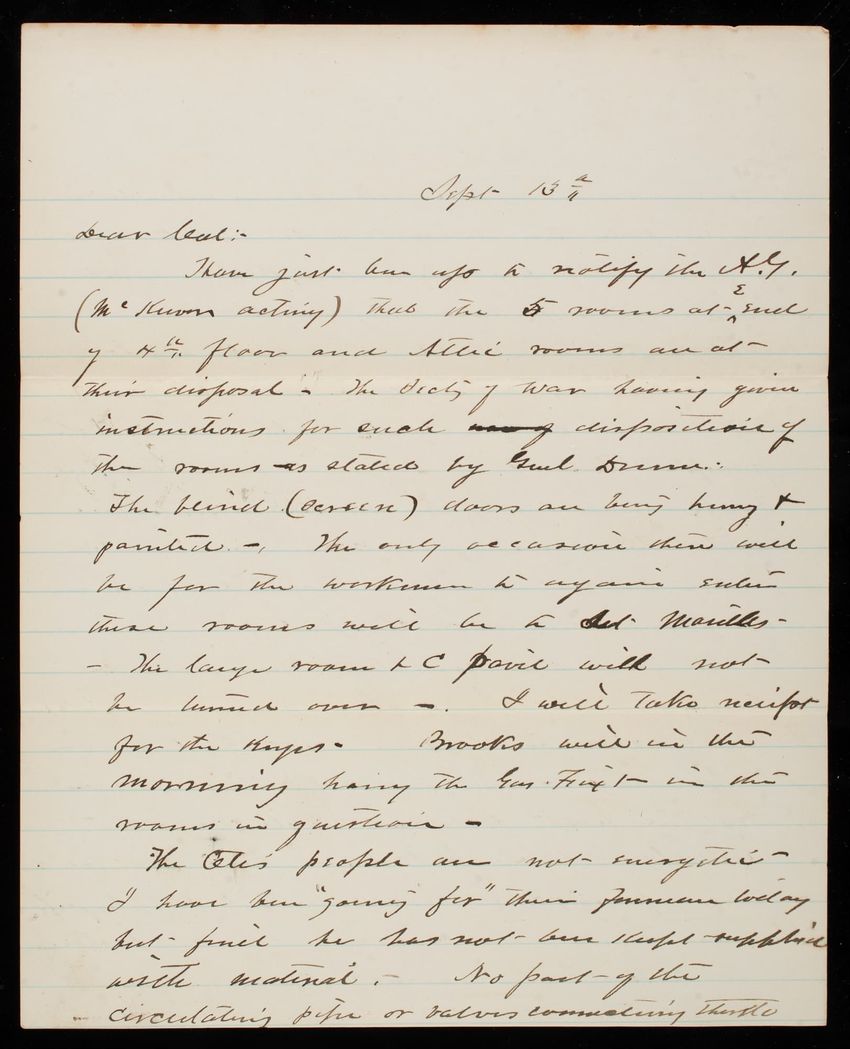 Sept 13th
Dear Col:-
I have just been up to notify the A.G.
(McKeever acting) that the 5 rooms at E End
of 4th floor and Attic rooms are at
their disposal - The Secty of War having given
instructions for such disposition of
the rooms as stated by Genl Drum.:
The blind (screen) doors are being hung &
painted -, The only occasion there will
be for the workmen to again enter
these rooms will be to Set Mantles -
- The large room & C Pavil will not
be turned over -. I will take receipt
for the Keys - Brooks will in the
morning hang the Gas Fixt in the
rooms in question -
The Otis people are not energetic -
I have been "going for" their foreman today
but find he has not been kept supplied
with material. - No part of the
circulating pipe or valves connecting thereto